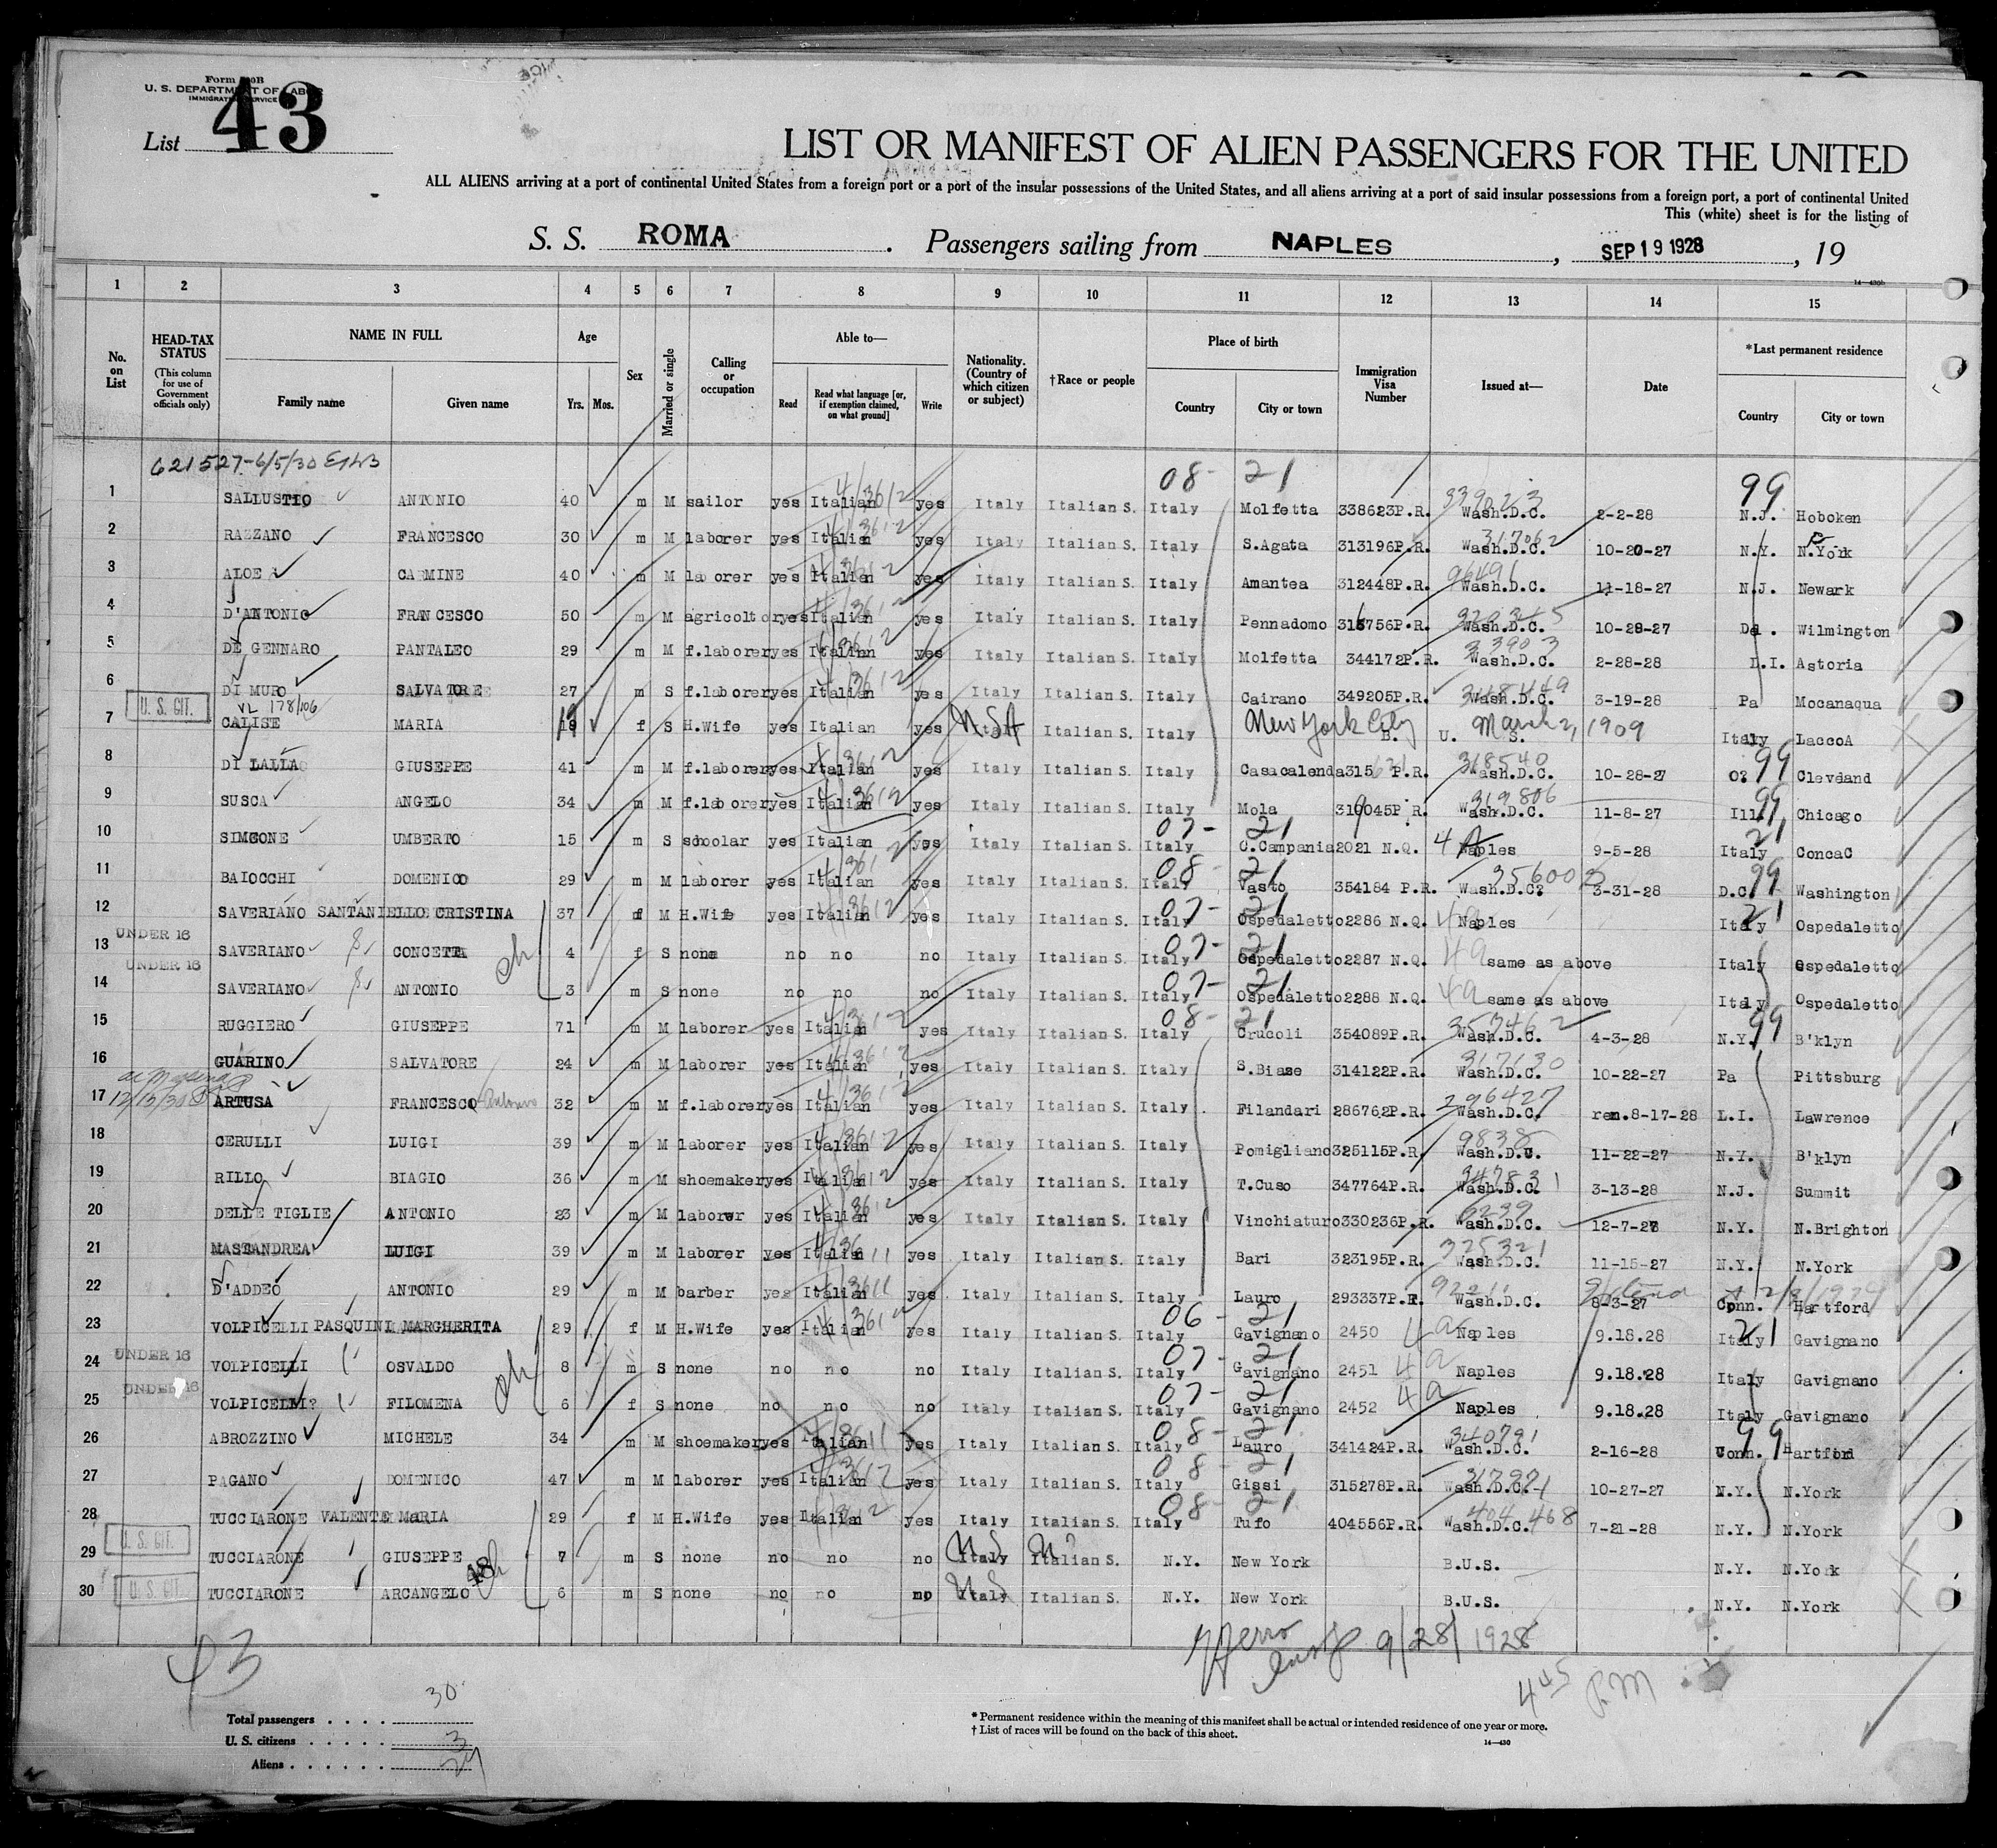 Form 500B
U. S. DEPARTMENT OF LABOR
IMMIGRATION SERVICE
List 43
LIST OR MANIFEST OF ALIEN PASSENGERS FOR THE UNITED
ALL ALIENS arriving at a port of continental United States from a foreign port or a port of the insular possessions of the United States, and all aliens arriving at a port of said insular possessions from a foreign port, a port of continental United
This (white) sheet is for the listing of
S. S. ROMA. Passengers sailing from NAPLES, SEP 19 1928, 19
14—430b
1 2 3 4 5 6 7 8 9 10 11 12 13 14 15
No. on List
HEAD-TAX STATUS (This column for use of Government officials only)
NAME IN FULL Family name Given name
Age Yrs. Mos.
Sex
Married or single
Calling or occupation
Able to— Read Read what language [or, if exemption claimed, on what ground] Write
Nationality. (Country of which citizen or subject)
†Race or people
Place of birth Country City or town
Immigration Visa Number
Issued at—
Date
*Last permanent residence Country City or town
621527-6/5/30 08- 21 99
1 SALLUSTIO ANTONIO 40 m M sailor yes Italian yes Italy Italian S. Italy Molfetta 338623P.R. Wash.D.C. 2-2-28 N.J. Hoboken
2 RAZZANO FRANCESCO 30 m M laborer yes Italian yes Italy Italian S. Italy S.Agata 313196P.R. Wash.D.C. 10-20-27 N.Y. N.York
3 ALOE CARMINE 40 m M laborer yes Italian yes Italy Italian S. Italy Amantea 312448P.R. Wash.D.C. 11-18-27 N.J. Newark
4 D'ANTONIO FRANCESCO 50 m M agricoltor yes Italian yes Italy Italian S. Italy Pennadomo 315756P.R. Wash.D.C. 10-28-27 Del. Wilmington
5 DE GENNARO PANTALEO 29 m M f.laborer yes Italian yes Italy Italian S. Italy Molfetta 344172P.R. Wash.D.C. 2-28-28 L.I. Astoria
6 DI MURO SALVATORE 27 m S f.laborer yes Italian yes Italy Italian S. Italy Cairano 349205P.R. Wash.D.C. 3-19-28 Pa Mocanaqua
U. S. CIT. VL 178/106
7 CALISE MARIA 19 f S H.Wife yes Italian yes Italy USA Italian S. Italy New York City B. U. S. March 2, 1909 Italy LaccoA
8 DI LALLA GIUSEPPE 41 m M f.laborer yes Italian yes Italy Italian S. Italy Casacalenda P.R. 318540 Wash.D.C. 10-28-27 O. 99 Cleveland
9 SUSCA ANGELO 34 m M f.laborer yes Italian yes Italy Italian S. Italy Mola 319045P.R. 319806 Wash.D.C. 11-8-27 Ill. 99 Chicago
10 SIMEONE UMBERTO 15 m S schoolar yes Italian yes Italy Italian S. Italy 07- 21 C.Campania 2021 N.Q. 4 Naples 9-5-28 Italy 21 ConcaC
11 BAIOCCHI DOMENICO 29 m M laborer yes Italian yes Italy Italian S. Italy 08- 21 Vasto 354184 P.R. Wash.D.C. 3-31-28 D.C. 99 Washington
12 SAVERIANO SANTANIELLO CRISTINA 37 f M H.Wife yes Italian yes Italy Italian S. Italy 07- 21 Ospedaletto 2286 N.Q. 4a Naples Italy 21 Ospedaletto
UNDER 16
13 SAVERIANO CONCETTA 4 f S none no no no Italy Italian S. Italy 07- 21 Ospedaletto 2287 N.Q. 4a same as above Italy Ospedaletto
UNDER 16
14 SAVERIANO ANTONIO 3 m S none no no no Italy Italian S. Italy 07- 21 Ospedaletto 2288 N.Q. 4a same as above Italy Ospedaletto
15 RUGGIERO GIUSEPPE 71 m M laborer yes Italian yes Italy Italian S. Italy 08- 21 Crucoli 354089P.R. Wash.D.C. 4-3-28 N.Y. 99 B'klyn
16 GUARINO SALVATORE 24 m M laborer yes Italian yes Italy Italian S. Italy S.Biase 314122P.R. 317630 Wash.D.C. 10-22-27 Pa Pittsburg
17 ARTUSA FRANCESCO Antonio 32 m M f.laborer yes Italian yes Italy Italian S. Italy Filandari 286762P.R. 296427 Wash.D.C. ren.8-17-28 L.I. Lawrence
18 CERULLI LUIGI 39 m M laborer yes Italian yes Italy Italian S. Italy Pomigliano 325115P.R. 9838 Wash.D.C. 11-22-27 N.Y. B'klyn
19 RILLO BIAGIO 36 m M shoemaker yes Italian yes Italy Italian S. Italy T.Cuso 347764P.R. Wash.D.C. 3-13-28 N.J. Summit
20 DELLE TIGLIE ANTONIO 23 m M laborer yes Italian yes Italy Italian S. Italy Vinchiaturo 330236P.R. 6239 Wash.D.C. 12-7-27 N.Y. N.Brighton
21 MASSANDREA LUIGI 39 m M laborer yes Italian yes Italy Italian S. Italy Bari 323195P.R. 325321 Wash.D.C. 11-15-27 N.Y. N.York
22 D'ADDEO ANTONIO 29 m M barber yes Italian yes Italy Italian S. Italy Lauro 293337P.R. Wash.D.C. 8-3-27 Conn. Hartford
23 VOLPICELLI PASQUINI MARGHERITA 29 f M H.Wife yes Italian yes Italy Italian S. Italy 06- 21 Gavignano 2450 4a Naples 9.18.28 Italy 21 Gavignano
UNDER 16
24 VOLPICELLI OSVALDO 8 m S none no no no Italy Italian S. Italy 07- 21 Gavignano 2451 4a Naples 9.18.28 Italy Gavignano
UNDER 16
25 VOLPICELLI FILOMENA 6 f S none no no no Italy Italian S. Italy 07- 21 Gavignano 2452 4a Naples 9.18.28 Italy Gavignano
26 ABROZZINO MICHELE 34 m M shoemaker yes Italian yes Italy Italian S. Italy 08- 21 Lauro 341424P.R. 340791 Wash.D.C. 2-16-28 Conn. 99 Hartford
27 PAGANO DOMENICO 47 m M laborer yes Italian yes Italy Italian S. Italy 08- 21 Gissi 315278P.R. Wash.D.C. 10-27-27 N.Y. N.York
28 TUCCIARONE VALENTE MARIA 29 f M H.Wife yes Italian yes Italy Italian S. Italy 08- 21 Tufo 404556P.R. 404468 Wash.D.C. 7-21-28 N.Y. N.York
U. S. CIT.
29 TUCCIARONE GIUSEPPE 7 m S none no no no Italy US Italian S. N.Y. New York B.U.S. N.Y. N.York
U. S. CIT.
30 TUCCIARONE ARCANGELO 6 m S none no no no Italy US Italian S. N.Y. New York B.U.S. N.Y. N.York
9/28/1928
4 45 P.M
43
Total passengers . . . . 30
U. S. citizens . . . . . 3
Aliens . . . . . . 27
* Permanent residence within the meaning of this manifest shall be actual or intended residence of one year or more.
† List of races will be found on the back of this sheet.
14—430